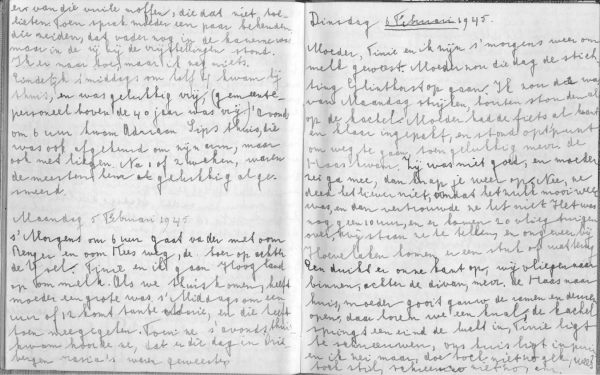 er van die vuile moffen, die dat niet toe-
lieten. Toen sprak moeder een paar bekenden
die zeiden, dat vader nog in de kazerne was
maar in de rij bij de vrijstellingen stond.
Ik er naar toe, maar ik zag niets.
Eindelijk 's middags om half 4 kwam hij
thuis, en was gelukkig vrij, (gemeente-
personeel boven de 40 jaar was vrij) 's avonds
om 6 uur kwam Adriaan Sips thuis, die
was ook afgekeurd om zijn arm, maar
ook met liegen. Na 1 of 2 weken, waren
de meesten
Maandag 5 Februari 1945
's Morgens om 6 uur gaat vader met oom
en oom Kees weg, de boer op achter
de IJsel. Tinie en ik gaan Hoog land
op om melk. Als we thuis komen, heeft
moeder een grote was, 's Middags om een
uur of 12 komt tante, en die heeft
toen meegegeten. Toen ze 's avonds thuis
kwam hoorde ze, dat er die dag in Drie
bergen razzia's waren geweest.
Dinsdag 6 Februari 1945.
Moeder, Tinie en ik zijn 's morgens weer om
melk geweest. Moeder zou die dag de stich-
ting op gaan. Ik zou de was
van Maandag strijken, bouten stonden al
op de kachel. Moeder had de fiets al kant
en klaar ingepakt, en stond op 't punt
om weg te gaan, toen gelukkig mevr. de
Haas kwam. Zij was niet goed, en moeder
zei ga mee, dan knap je weer op. Nee, ze
deed het liever niet, omdat het zulk mooi weer
was, en dan vertrouwde ze het niet. Het was
nog geen 10 uur, en er komen 20 vliegtuigen
over, wij staan ze te tellen, en ongeveer bij
Hoevelaken komen er een stuk of wat terug.
Een duikt er onze kant op, wij vliegen naar
binnen, achter de divan, mevr. de Haas naar
huis, moeder gooit gauw de ramen en deuren
open, daar horen we een knal, de kachel
springt een eind de lucht in, Tinie ligt
te schreeuwen, ons huis ligt in puin
en ik zei maar,